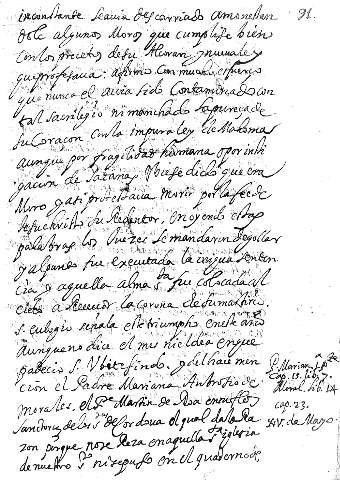 inconstante se avia descarriado amonestan
dole algunos Moros que cumpliese bien
con los precetos de su Alcoran, y nueva ley
que profesava: afirmo con mucho esfuerço
que nunca el avia sido contaminado con
tal sacrilegio ni manchado la pureza de
su coraçon con la impura ley de Mahoma
aunque por fragilidad humana o por inti
gacion de satanas ubiese dicho que era
Moro, y asi protestava morir por la fee de
Jesuchristo su Redentor. en oyendo estas
palabras los Juezes le mandaron degollar
y al punto fue executada la iniqua senten
cia y aquella alma sta fue colocada al
cielo a recevir la corona de su martirio.
s. eulogio señala este triumpho en este año
aunque no dice el mes ni el dia en que
padecio s. Vbitesindo, y del hace men
cion el Padre Mariana, Ambrosio de
morales, el Pe Martin de Roa en su flos
sanctorum de los ss de Cordova el qual da la Ra
zon porque no se Reza en aquella sta iglesia
de nuestro sto ni se puso en el quaderno de
91.
P. Marian. 1. pte
Cap. 15. lib. 7.
Moral. lib. 14
cap. 23.
XV. de Mayo